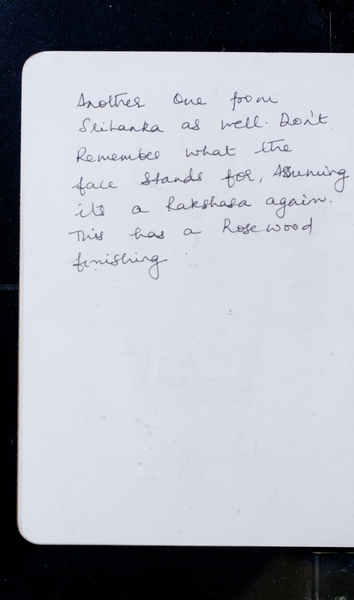 Another One from
Srilanka as well. Don't
Remember what the
face stands for, Assuming
its a Rakshasa again.
This has a Rosewood
finishing